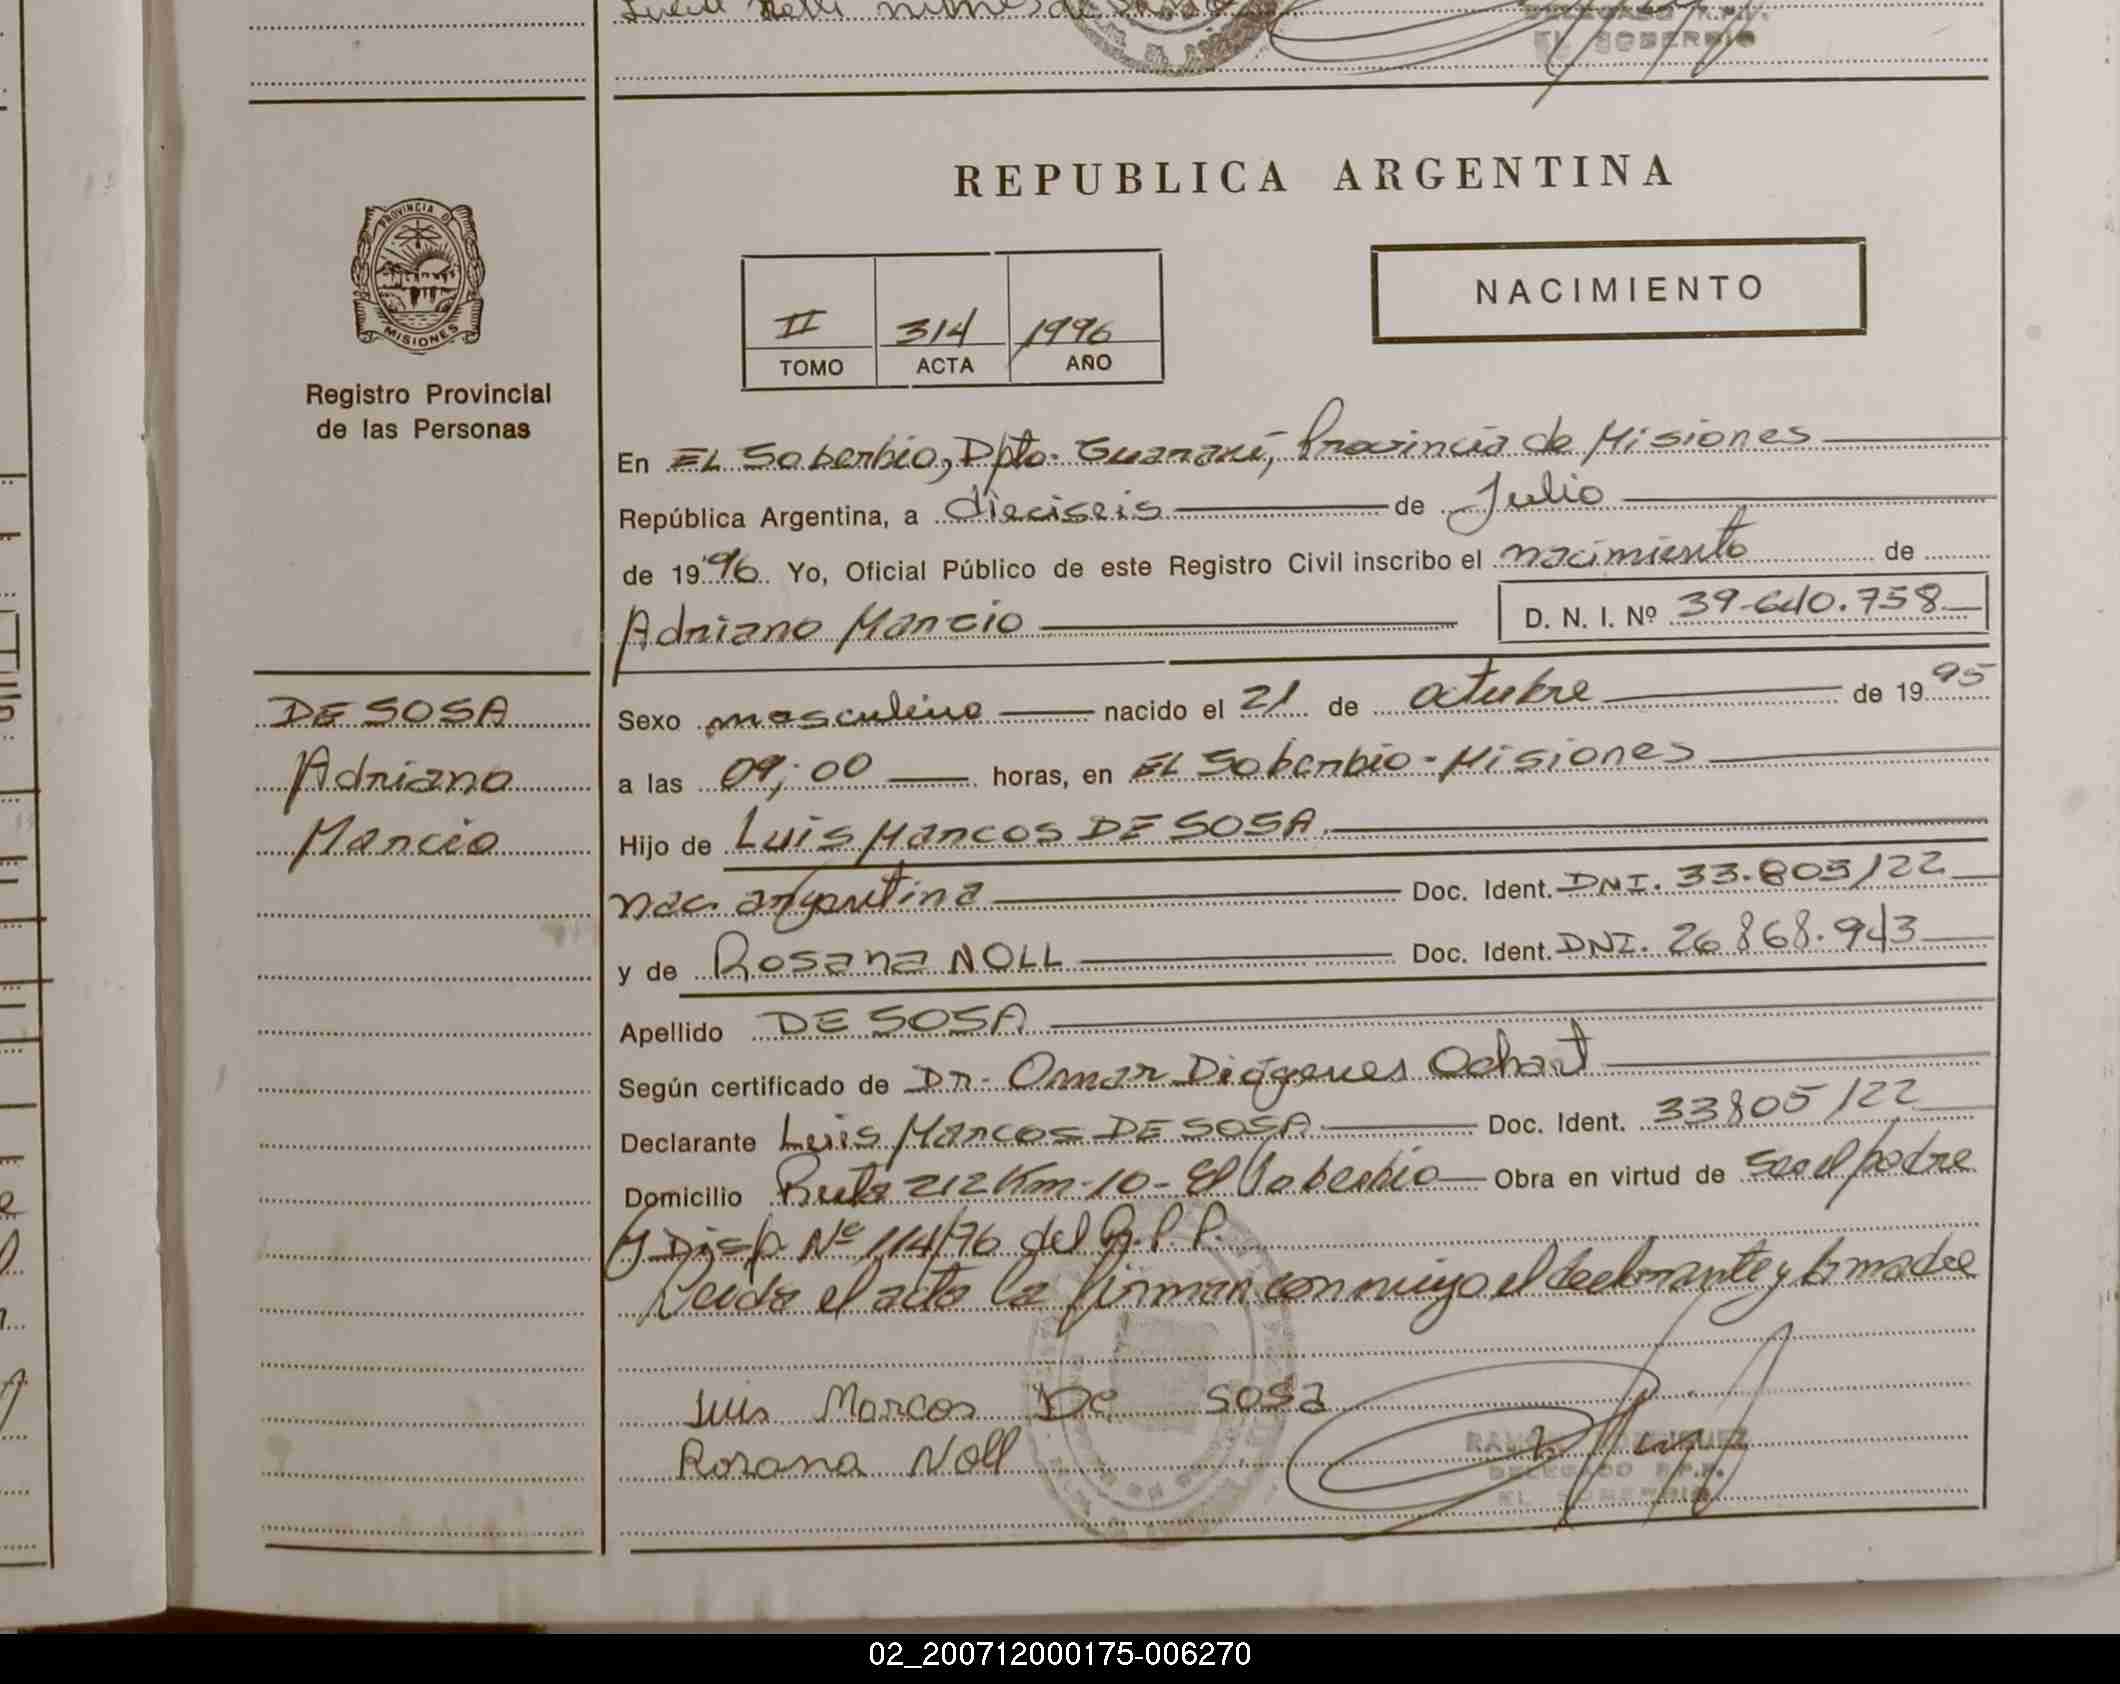 EL SOBERBIO
REPUBLICA ARGENTINA
PROVINCIA D
MISIONES
Registro Provincial
de las Personas
NACIMIENTO
II 314 1996
TOMO ACTA AÑO
En EL Soberbio, Dpto. Guaraní, Provincia de Misiones
República Argentina, a dieciseis de Julio
de 1996 Yo, Oficial Público de este Registro Civil inscribo el nacimiento de
Adriano Marcio D. N. I. Nº 39.640.758
DE SOSA
Adriano
Marcio
Sexo masculino nacido el 21 de octubre de 1995
a las 09;00 horas, en EL Soberbio - Misiones
Hijo de Luis Marcos DE SOSA
nac. argentina Doc. Ident. DNI. 33.805122
y de Rosana NOLL Doc. Ident. DNI. 26.868.943
Apellido DE SOSA
Según certificado de Dr. Omar Diógenes Ochart
Declarante Luis Marcos DE SOSA Doc. Ident. 33805122
Domicilio Ruta 212 Km-10- El Soberbio Obra en virtud de ser el padre
y Disp. Nº 114/96 del R.P.P.
Leida el acta la firman conmigo el declarante y la madre
Luis Marcos De Sosa
Rosana Noll
DELEGADO R.P.P.
EL SOBERBIO
02_200712000175-006270